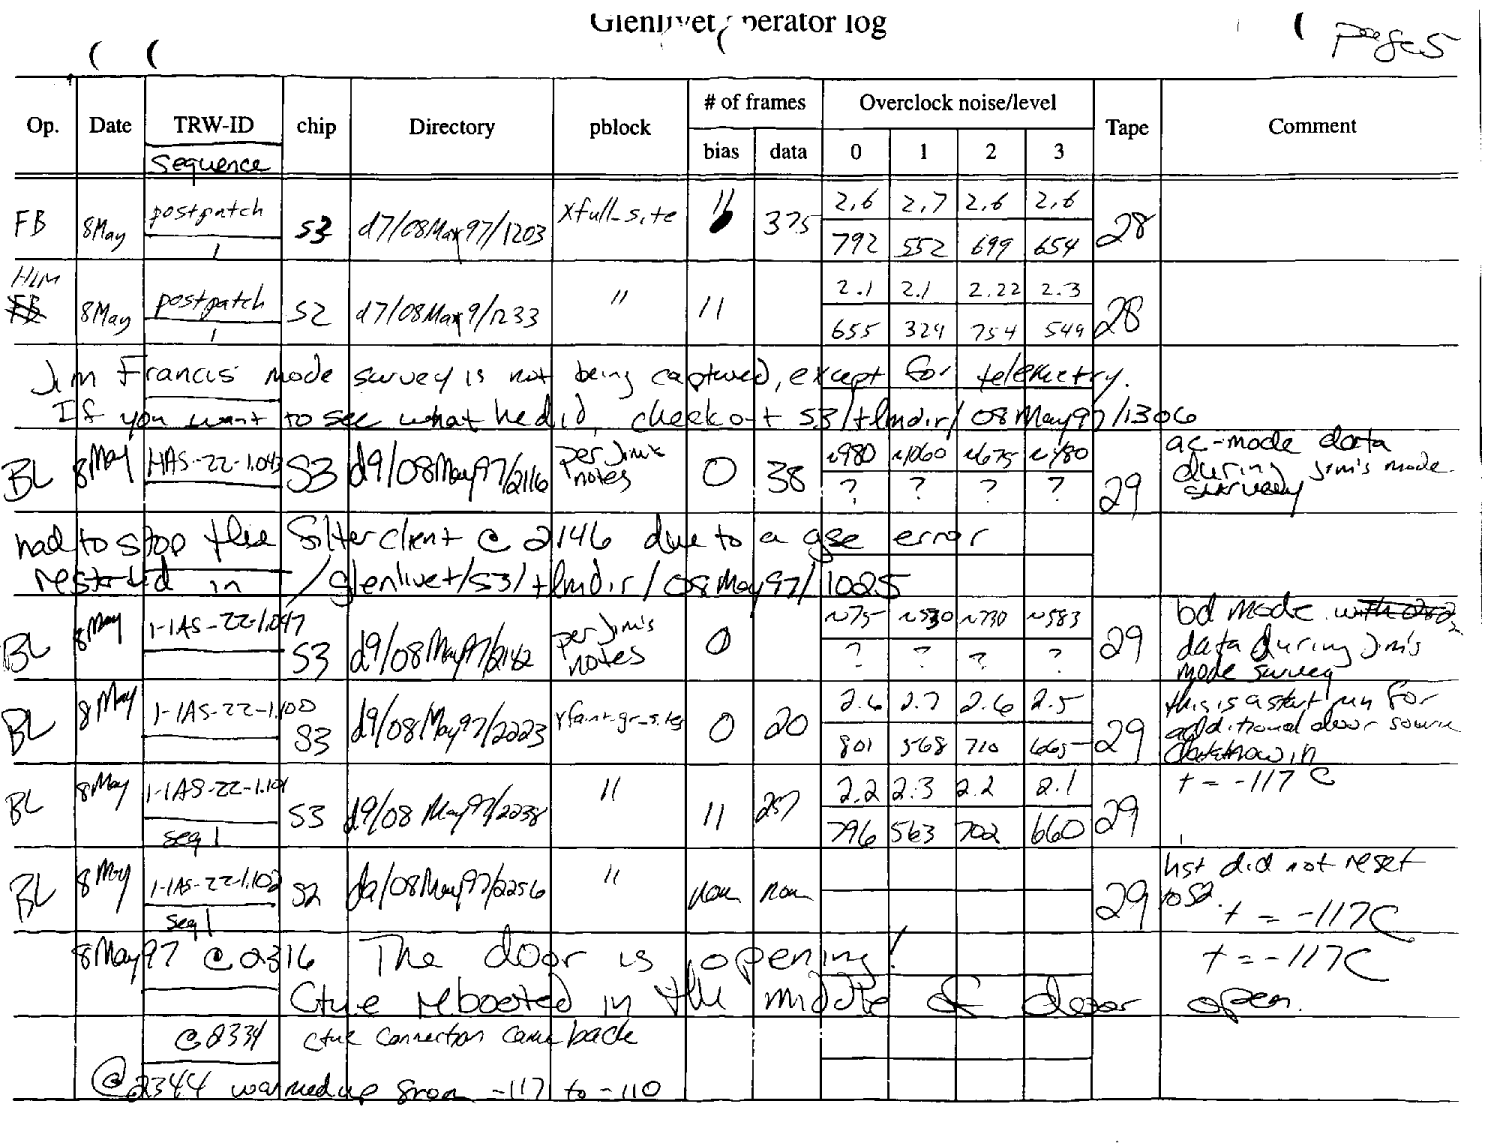 Glenlivet operator log
page 5
Op. Date TRW-ID chip Directory pblock # of frames Overclock noise/level Tape Comment
Sequence bias data 0 1 2 3
FB 8May postpatch S3 d7/08May97/1203 xfull_site 11 375 2.6 2.7 2.6 2.6 28
1 792 552 699 654
HIM
FB 8May postpatch S2 d7/08May9/1233 " 11 2.1 2.1 2.22 2.3 28
1 655 329 754 549
Jim Francis' mode survey is not being captured, except for telemetry.
If you want to see what he did, check out S3/tlmdir/08May97/1306
BL 8May HAS-22-1.047 S3 d9/08May97/2116 per Jim's notes 0 38 ~980 ~1060 ~675 ~780 29 ac-mode data
? ? ? ? during Jim's mode
survey
had to stop the filterclient @ 2146 due to a gse error
restarted in /glenlivet/S3/tlmdir/08May97/1025
BL 8May 1-IAS-22-1.047 S3 d9/08May97/2142 per Jim's notes 0 ~75 ~530 ~730 ~583 29 bd mode
? ? ? ? data during Jim's
mode survey
BL 8May 1-IAS-22-1.100 S3 d9/08May97/2223 0 20 2.6 2.7 2.6 2.5 29 this is a start run for
801 568 710 665 additional door source
BL 8May 1-IAS-22-1.101 S3 d9/08May97/2238 " 11 257 2.2 2.3 2.2 2.1 29 t = -117 C
seq 1 796 563 702 660
BL 8May 1-IAS-22-1.102 S2 d2/08May97/2256 " 29 hst did not reset
seq 1 to S2. t = -117C
8May97 @ 2316 The door is opening! t = -117C
Ctue rebooted in the middle of door open.
@ 2334 ctue connection came back
@ 2344 warmed up from -117 to -110